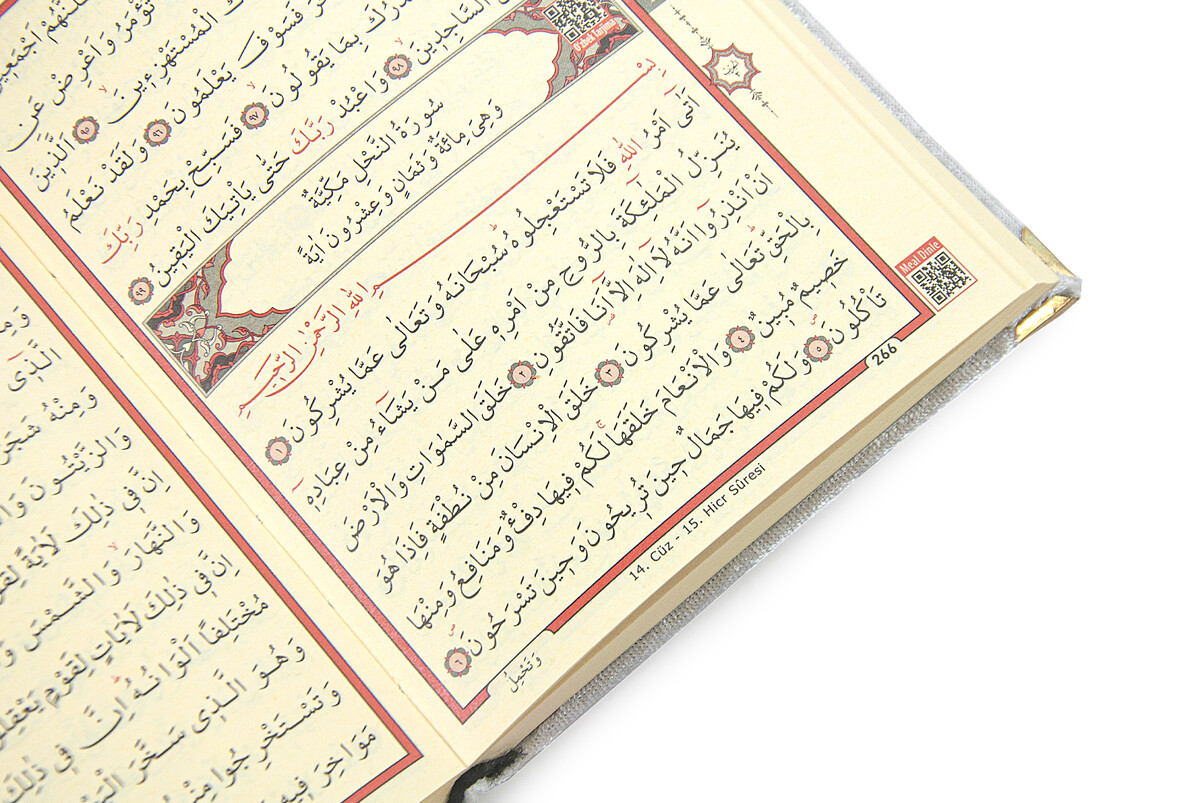 تُؤْمَرُ وَاَعْرِضْ عَنِ
الْمُسْتَهْزِء۪ينَ ٩٥ اَلَّذ۪ينَ
فَسَوْفَ يَعْلَمُونَ ٩٦ وَلَقَدْ نَعْلَمُ
بِمَا يَقُولُونَ ٩٧ فَسَبِّحْ بِحَمْدِ رَبِّكَ
السَّاجِد۪ينَ ٩٨ وَاعْبُدْ رَبَّكَ حَتّٰى يَأْتِيَكَ الْيَق۪ينُ ٩٩
Özbek Tarjima
سُورَةُ النَّحْلِ مَكِّيَّةٌ
وَهِىَ مِائَةٌ وَثَمَانٍ وَعِشْرُونَ اٰيَةً
بِسْمِ اللّٰهِ الرَّحْمٰنِ الرَّح۪يمِ
اَتٰٓى اَمْرُ اللّٰهِ فَلَا تَسْتَعْجِلُوهُ سُبْحَانَهُ وَتَعَالٰى عَمَّا يُشْرِكُونَ ١
يُنَزِّلُ الْمَلٰٓئِكَةَ بِالرُّوحِ مِنْ اَمْرِه۪ عَلٰى مَنْ يَشَٓاءُ مِنْ عِبَادِه۪ٓ
اَنْ اَنْذِرُٓوا اَنَّهُ لَٓا اِلٰهَ اِلَّٓا اَنَا۬ فَاتَّقُونِ ٢ خَلَقَ السَّمٰوَاتِ وَالْاَرْضَ
بِالْحَقِّ تَعَالٰى عَمَّا يُشْرِكُونَ ٣ خَلَقَ الْاِنْسَانَ مِنْ نُطْفَةٍ فَاِذَا هُوَ
خَص۪يمٌ مُب۪ينٌ ٤ وَالْاَنْعَامَ خَلَقَهَا لَكُمْ ف۪يهَا دِفْءٌ وَمَنَافِعُ وَمِنْهَا
تَأْكُلُونَ ٥ وَلَكُمْ ف۪يهَا جَمَالٌ ح۪ينَ تُر۪يحُونَ وَح۪ينَ تَسْرَحُونَ ٦
وَتَحْمِلُ
Meal Dinle
266
14. Cüz - 15. Hicr Sûresi
الَّذ۪ٓى
وَمِنْهُ شَجَرٌ
وَالزَّيْتُونَ
اِنَّ ف۪ى ذٰلِكَ لَاٰيَةً
وَالنَّهَارَ وَالشَّمْسَ
اِنَّ ف۪ى ذٰلِكَ لَاٰيَاتٍ لِقَوْمٍ
مُخْتَلِفًا اَلْوَانُهُ اِنَّ ف۪ى ذٰلِكَ
وَهُوَ الَّذ۪ى سَخَّرَ
وَتَسْتَخْرِجُوا
مَوَاخِرَ ف۪يهِ